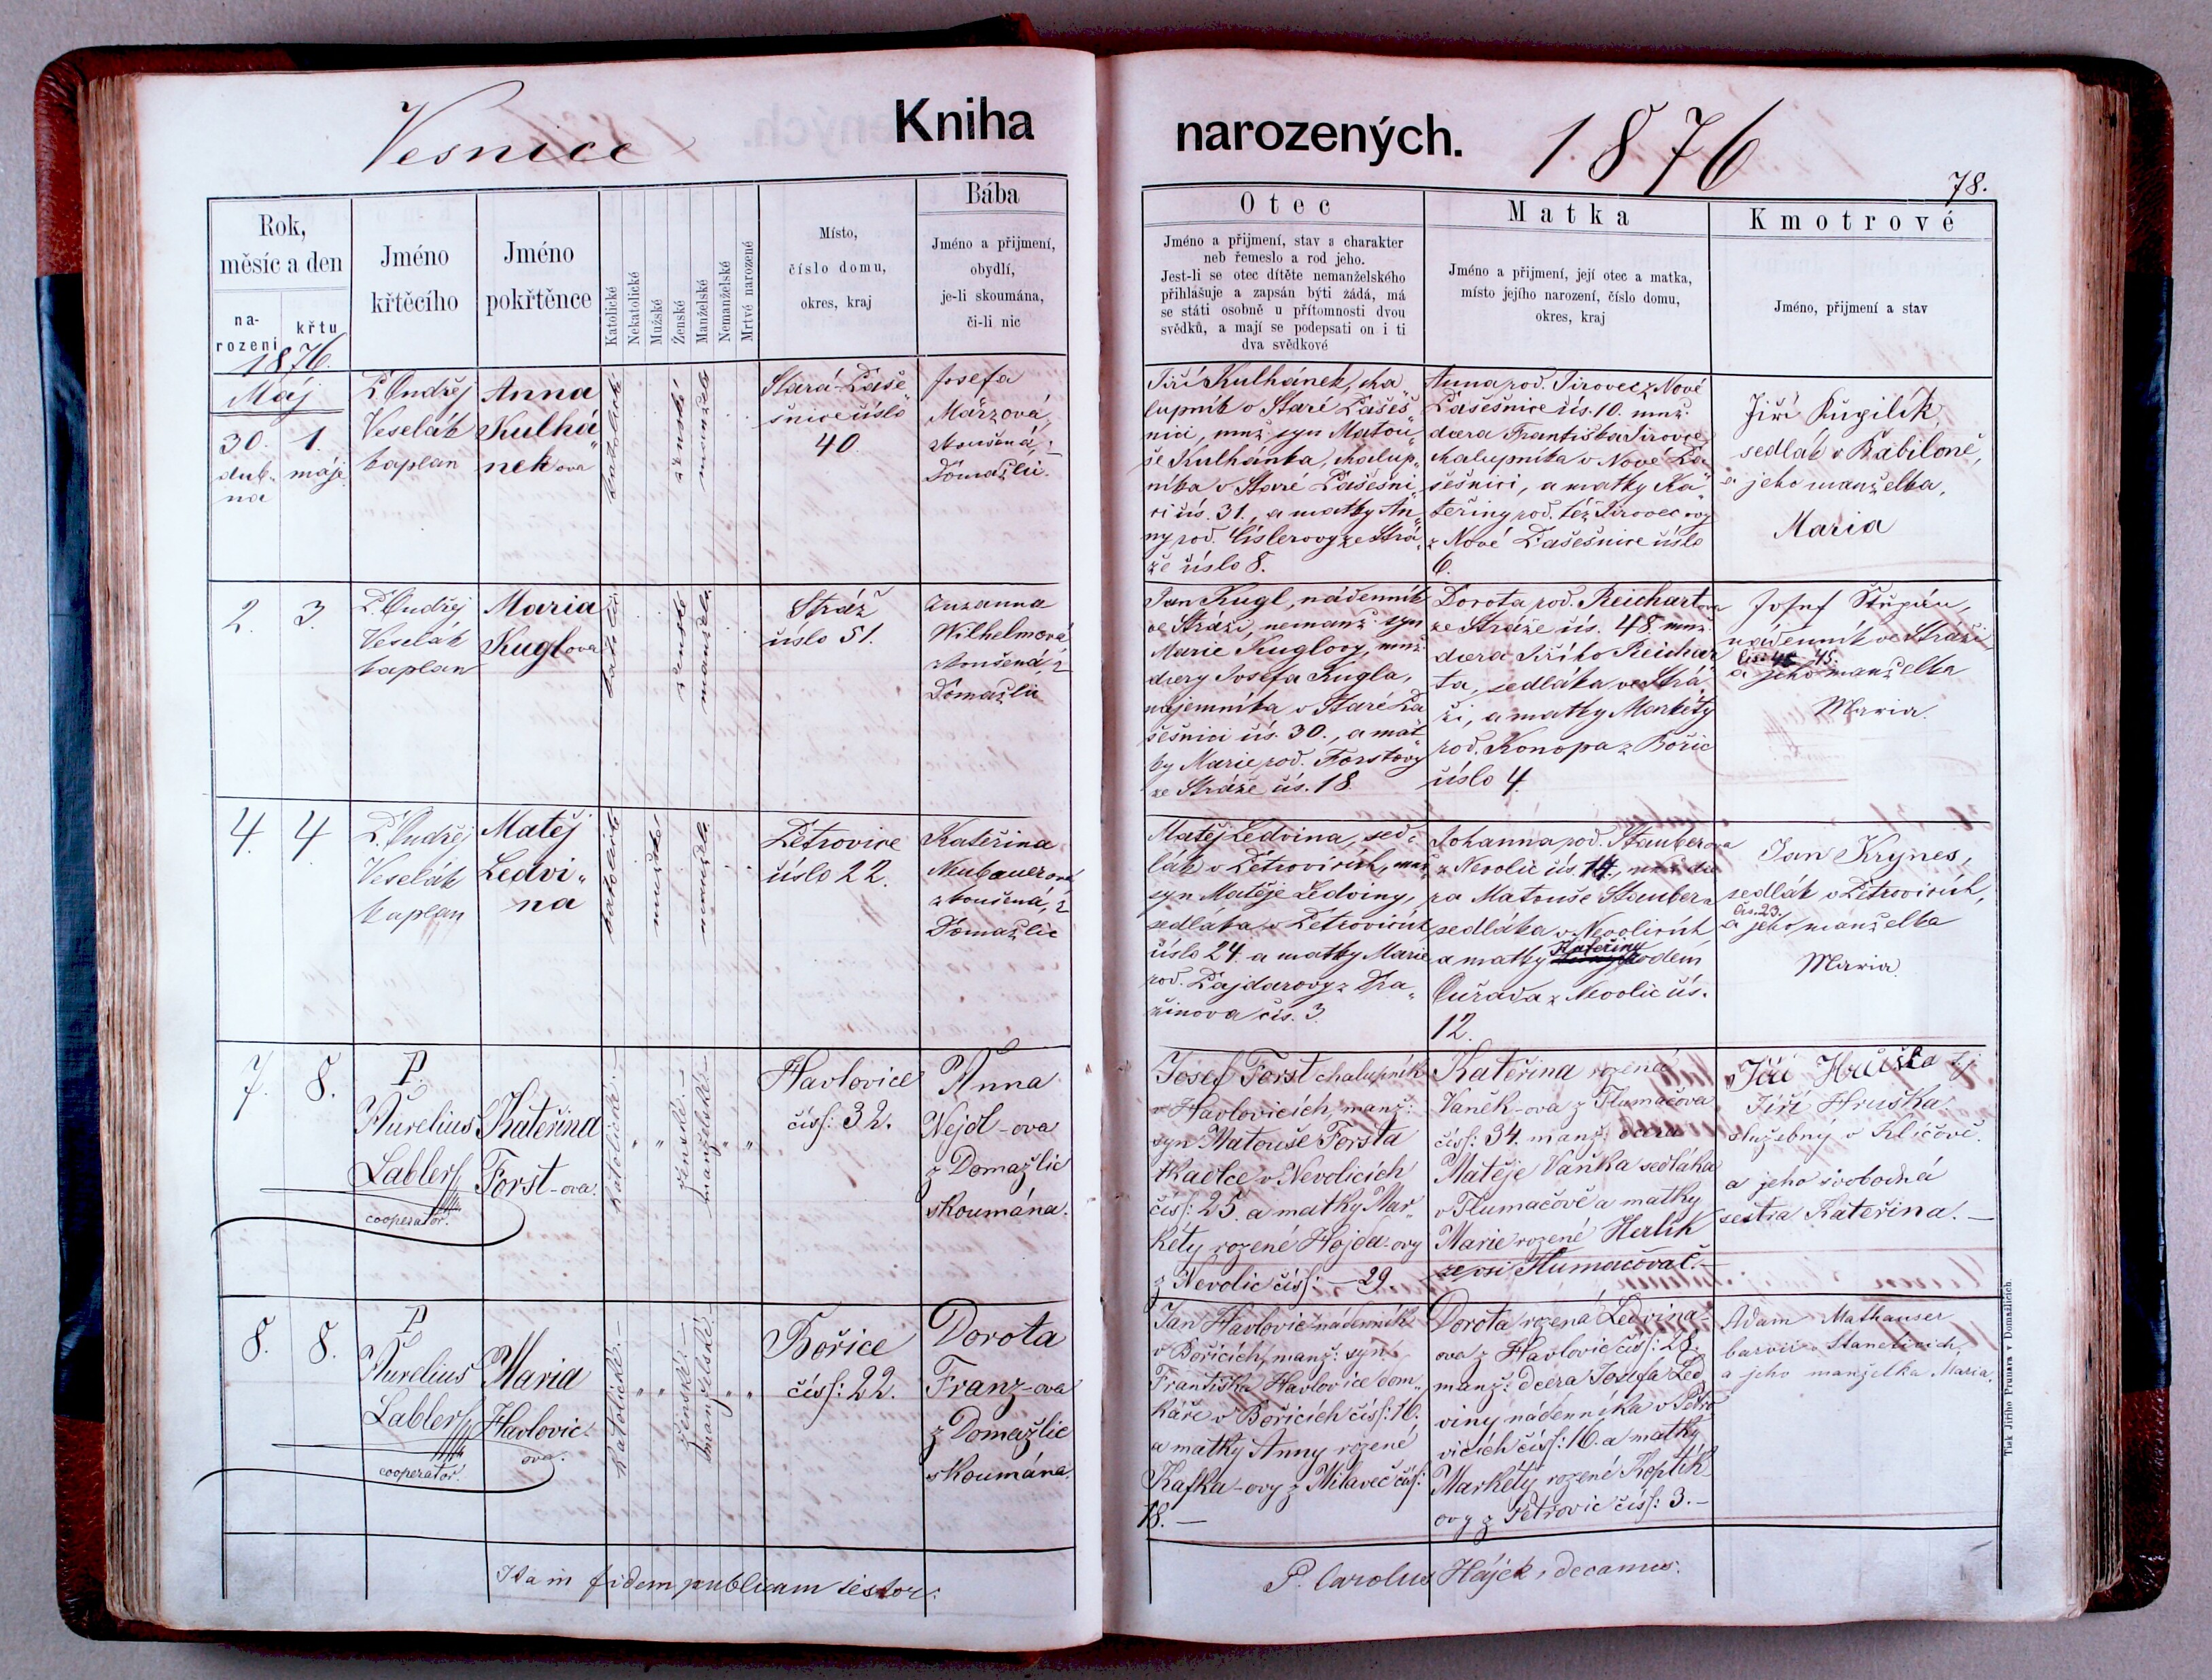 Vesnice
Kniha
narozených.
1876
78.
Rok,
měsíc a den
na-
rození
křtu
1876.
Jméno
křtěcího
Jméno
pokřtěnce
Katolické
Nekatolické
Mužské
Ženské
Manželské
Nemanželské
Mrtvě narozené
Místo,
číslo domu,
okres, kraj
Bába
Jméno a přijmení,
obydlí,
je-li skoumána,
či-li nic
Otec
Jméno a přijmení, stav a charakter
neb řemeslo a rod jeho.
Jest-li se otec dítěte nemanželského
přihlašuje a zapsán býti žádá, má
se státi osobně u přítomnosti dvou
svědků, a mají se podepsati on i ti
dva svědkové
Matka
Jméno a přijmení, její otec a matka,
místo jejího narození, číslo domu,
okres, kraj
Kmotrové
Jméno, přijmení a stav
Máj
30.
dub-
na
1.
máje
P. Ondřej
Veselák
kaplan
Anna
Kulhá„
nekova
katolické
ženské
manželské
Stará Paše
šnice číslo
40.
Josefa
Märzová,
zkoušená, z
Domažlic.
Jiří Kulhánek, cha„
lupník v Staré Pašeš„
nici, mnž. syn Matou„
še Kulhánka, chalup„
níka v Staré Pašešni„
ci čís. 31., a matky An„
ny rod. Císlerovy ze Strá„
že číslo 8.
Anna rod. Jirovec z Nové
Pašešnice čís. 10. mnž.
dcera Františka Jirovce,
chalupníka v Nové Pa„
šešnici, a matky Ka„
teřiny rod. též Jirovcovy
z Nové Pašešnice číslo
6.
Jiří
sedlák v Babiloně,
a jeho manželka,
Maria
2.
3.
P. Ondřej
Veselák
kaplan
Maria
Kuglova
katolické
ženské
manželské
Stráž
číslo 51.
Zuzanna
Wilhelmová
zkoušená, z
Domažlic
Jan Kugl, nádenník
ve Stráži, nemanž. syn
Marie Kuglovy, mnž.
dcery Josefa Kugla,
nájemníka v Staré Pa„
šešnici čís. 30., a mat„
ky Marie rod. Forstovy
ze Stráže čís. 18.
Dorota rod. Reichartova
ze Stráže čís. 48. mnž.
dcera Jiřího Reichar„
ta, sedláka ve Strá„
ži, a matky Markéty
rod. Konopa z Bořic
číslo 4.
Josef Štěpán,
nádenník ve Stráži
čís. 45.
a jeho manželka
Maria.
4.
4.
P. Ondřej
Veselák
kaplan
Matěj
Ledvi„
na
katolické
mužské
manželské
Petrovice
číslo 22.
Kateřina
Neubauerová
zkoušená, z
Domažlic
Matěj Ledvina, sed„
lák v Petrovicích, mnž.
syn Matěje Ledviny,
sedláka v Petrovicích
číslo 24. a matky Marie
rod. Pajdarovy z Dra„
žinova čís. 3.
Johanna rod. Stauberova
z Nevolic čís. 14., mnž. dce
ra Matouše Staubera
sedláka v Nevolicích
a matky Kateřiny rodem
Čuřada z Nevolic čís.
12.
Jan Krynes,
sedlák v Petrovicích,
čís. 23.
a jeho manželka
Maria.
7.
8.
P.
Aurelius
Labler
cooperator.
Kateřina
Forst-ova.
katolické.
ženské.
manželské
Havlovice
čísl: 32.
Anna
Nejdl-ova
z Domažlic
skoumána.
Josef Forst chalupník
v Havlovicích, manž:
syn Matouše Forsta
tkadlce v Nevolicích
čísl: 25. a matky Mar„
kéty rozené Hojda-ovy
z Nevolic čísl: — 29.
Kateřina rozená
Vaněk-ova z Tlumačova
čísl: 34. manž: dcera
Matěje Vaňka sedláka
v Tlumačově a matky
Marie rozené Herlík
ze vsi Tlumačova č. —
Jiří Hruška tj
Jiří Hruška
služebný v Klíčově.
a jeho svobodná
sestra Kateřina. —
8.
8.
P.
Aurelius
Labler
cooperator.
Maria
Havlovic
ova.
katolické. —
ženské. —
manželské. —
Bořice
čísl: 22.
Dorota
Franz-ova
z Domažlic
skoumána.
Jan Havlovic nádenník
v Bořicích, manž: syn.
Františka Havlovice dom„
káře v Bořicích čísl: 16.
a matky Anny rozené
Kafka-ovy z Milaveč čísl:
18. —
Dorota rozená Ledvina-
ova z Havlovic čísl: 28.
manž: dcera Josefa Led
viny nádenníka v Petro
vicích čísl: 16. a matky
Markéty rozené Koptík
ovy z Petrovic čísl: 3. —
Adam Mathauser
barvíř v Staněticích,
a jeho manželka Maria.
Ita in fidem publicam testor:
P. Carolus Hájek, decanus.
Tisk Jiřího Prunara v Domažlicích.